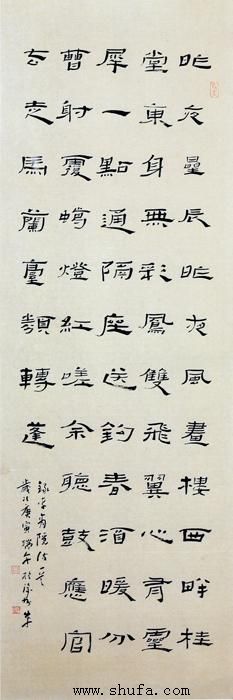 昨夜曐辰昨夜風畫樓西畔桂
堂東身無彩鳳雙飛翼心有靈
犀一點通隔座送鈎春酒暖分
曹射覆蠟燈紅嗟余聽鼓應官
去走馬蘭臺類轉蓬
錄李商隱詩
歲次庚寅端午於
www.shufa.com